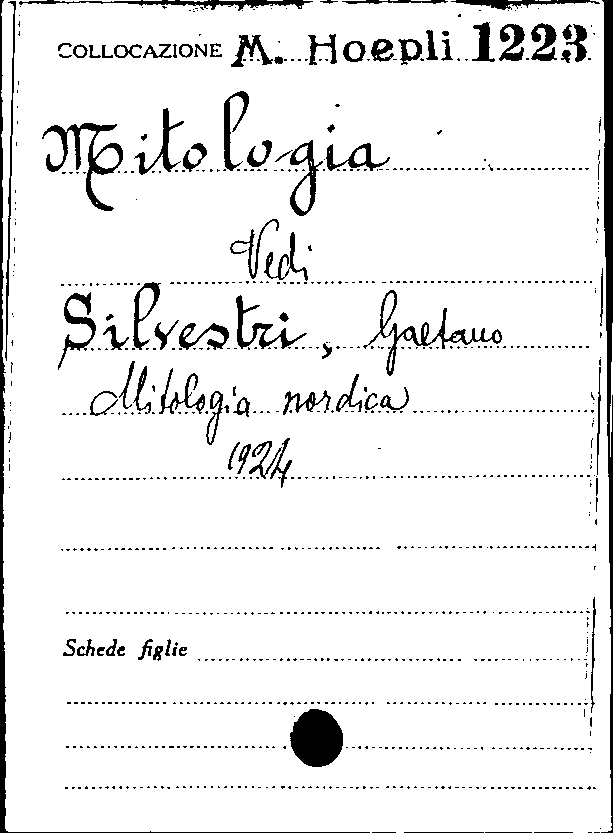 COLLOCAZIONE M. Hoepli 1223
Mitologia
Vedi
Silvestri, Gaetano
Mitologia nordica
1924
Schede figlie